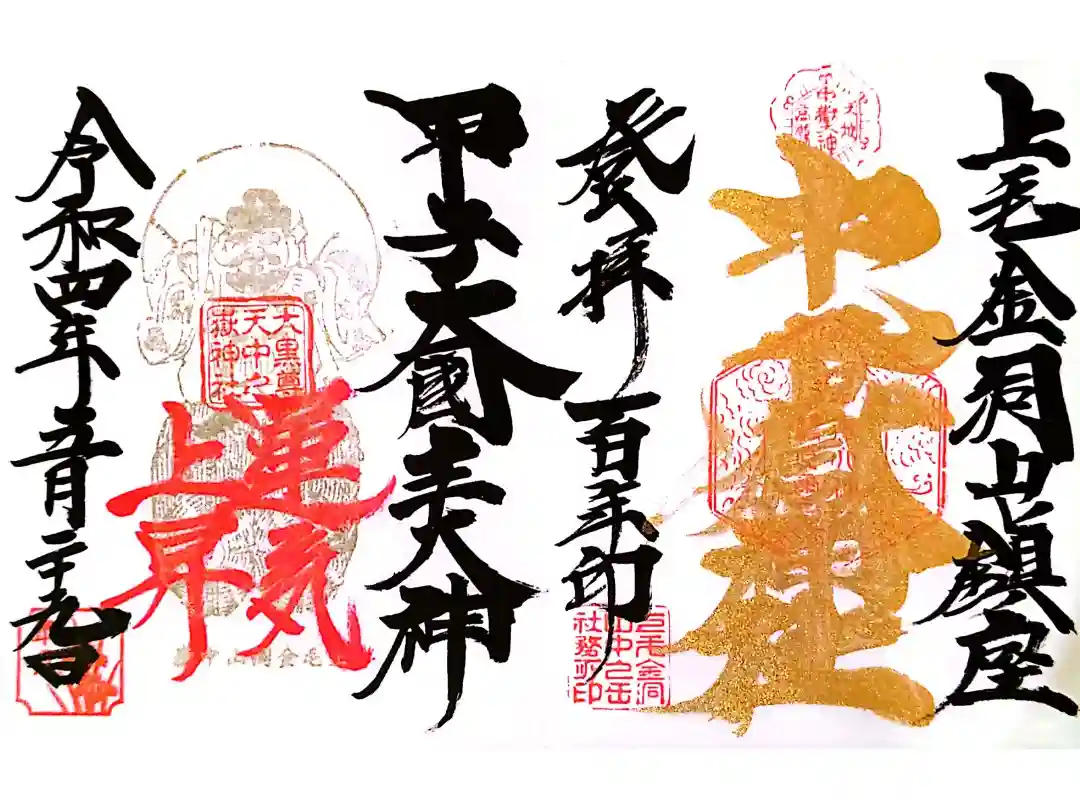 上毛金洞山鎮座
登拝 百年印
上毛金洞
山中之岳
社務所印
甲子大國主大神
大黒尊
天中之
嶽神社
運気
上昇
令和四年五月二十九日